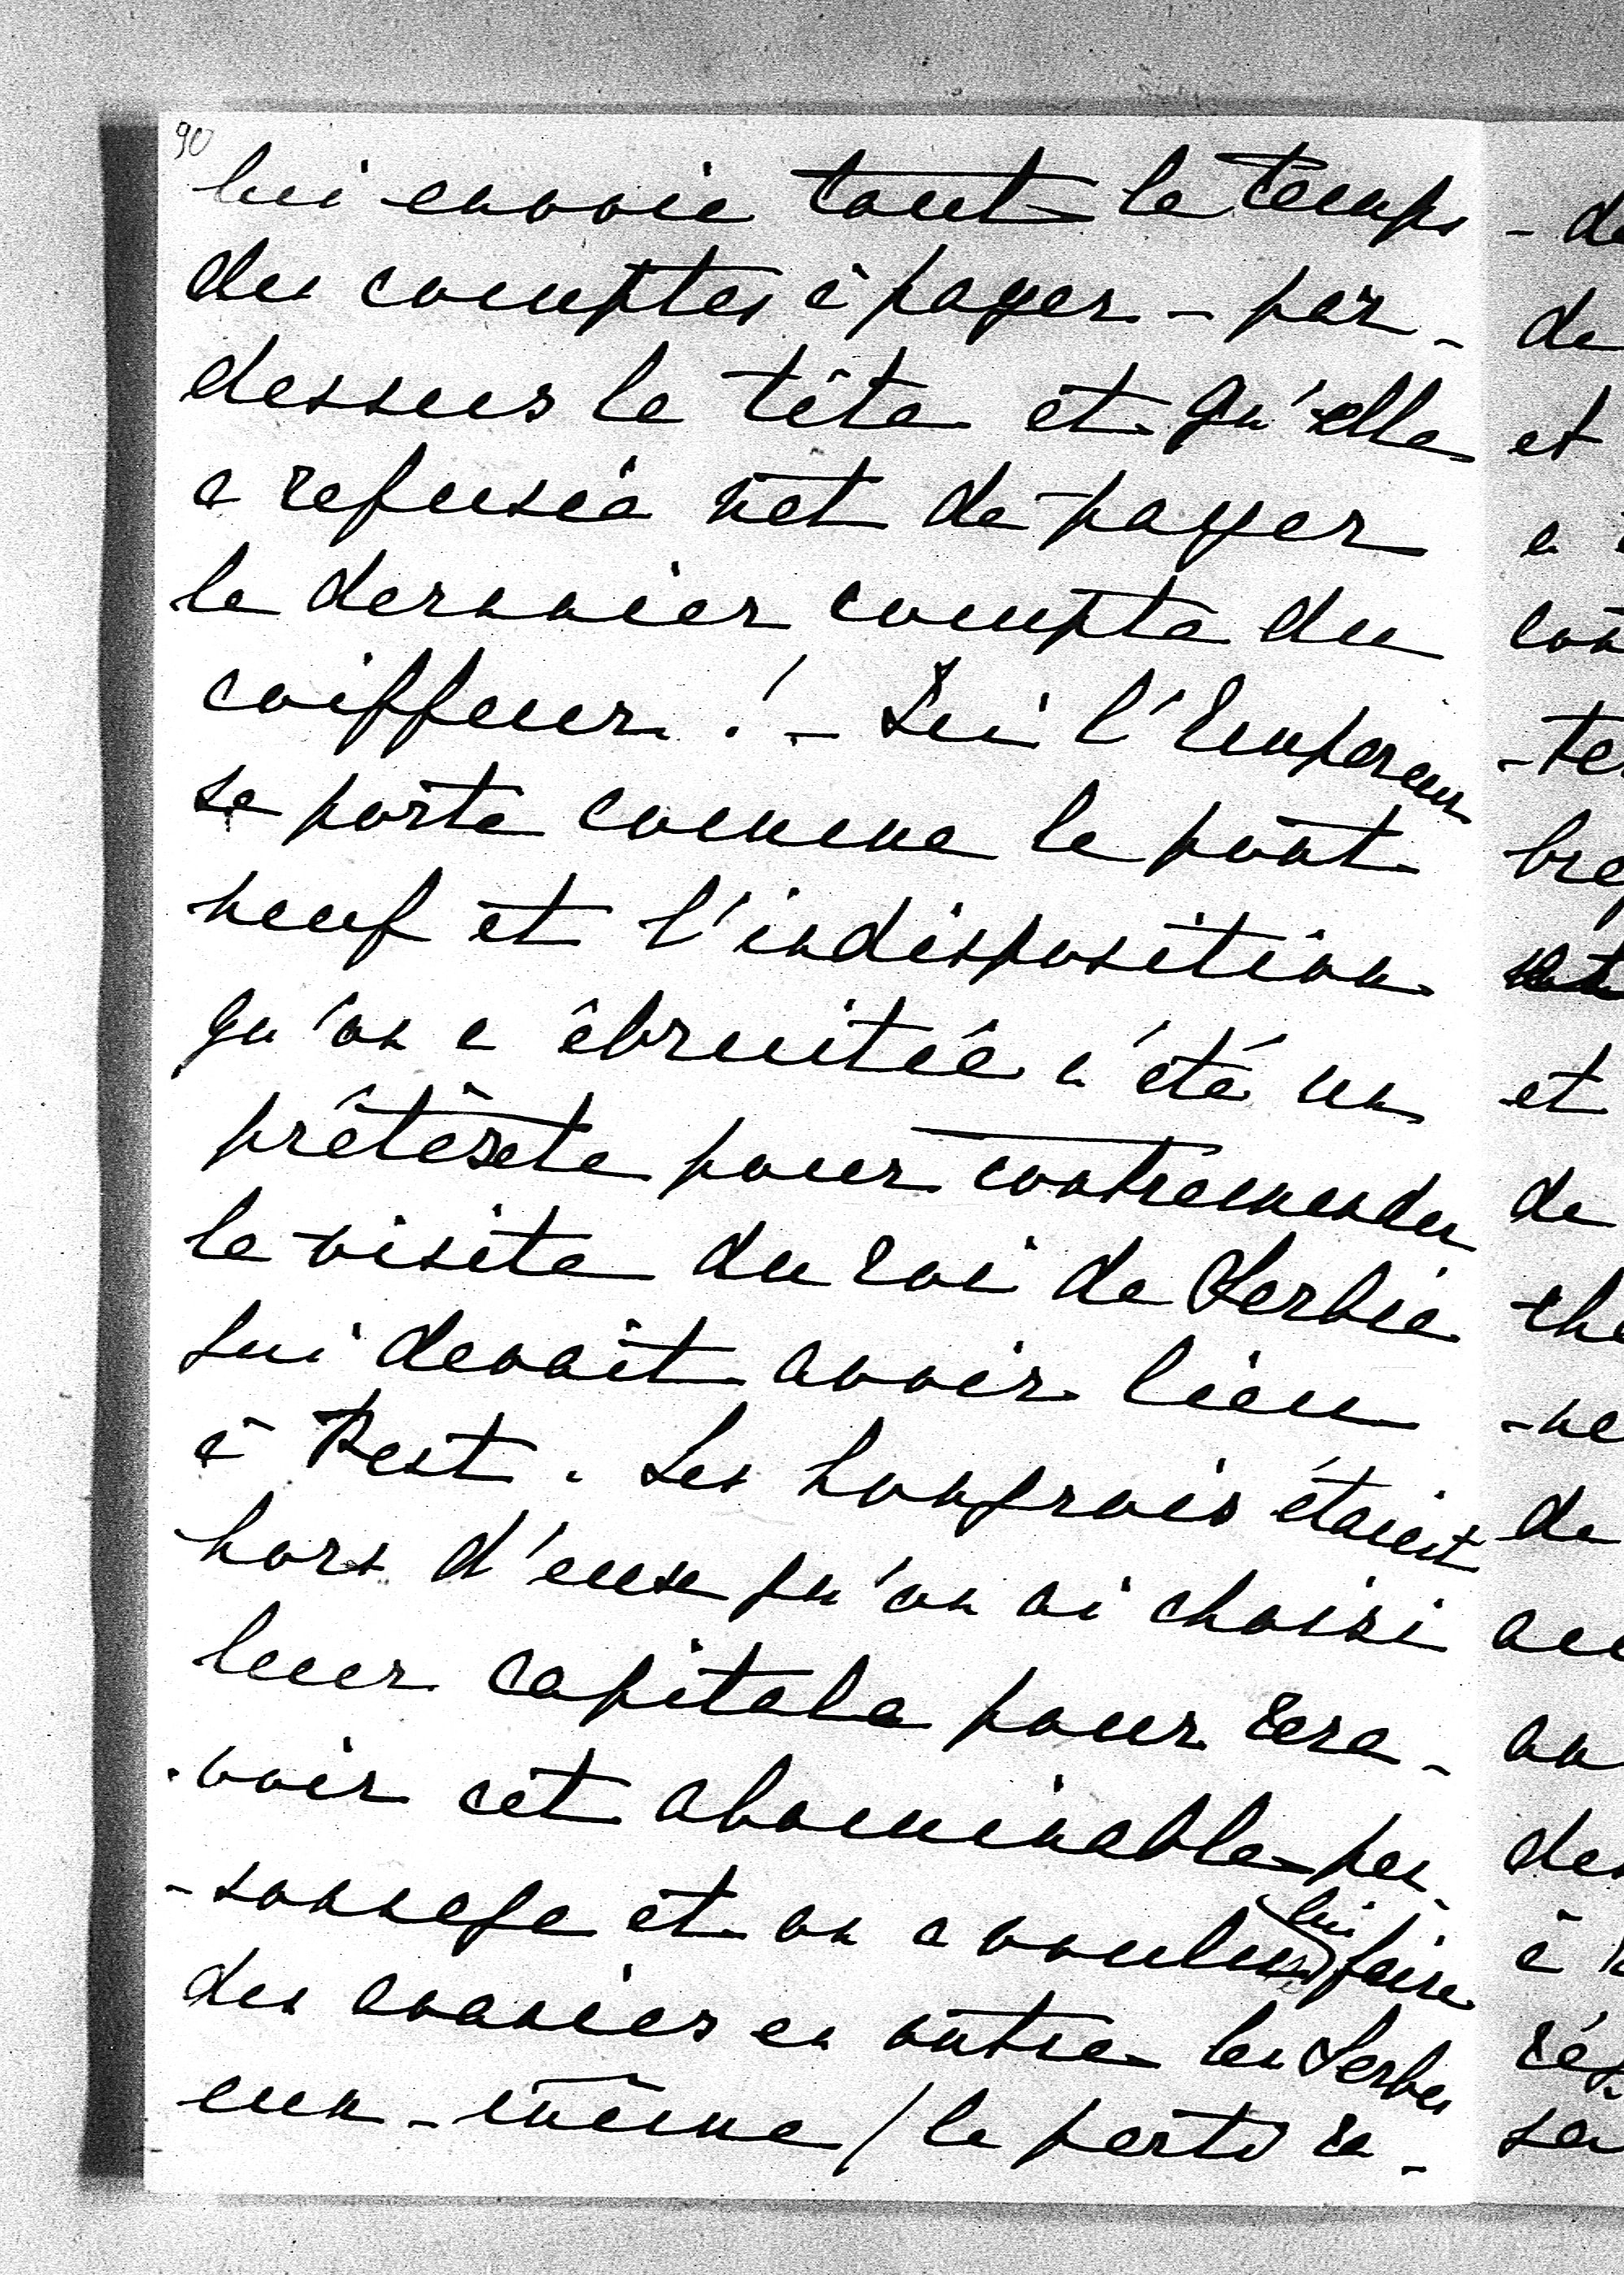 90
lui envoie tout le temps
des comptes à payer - par-
dessus la tête et qu'elle
a refusée net de payer
le dernier compte du
coiffeur ! - Lui l'Empereur
se porte comme le pont
neuf et l'indisposition
qu'on a êbruitée a été un
prêtèxte pour contremander
la visite du roi de Serbie
qui devait avoir lieu
à Pest. Les hongrois étaient
hors d'eux qu'on ai choisi
leur capitale pour rece-
-voir cet abominable per-
-sonnage et on a voulu lui faire
des avanies en outre les Serbes
eux-même / le parti ra-